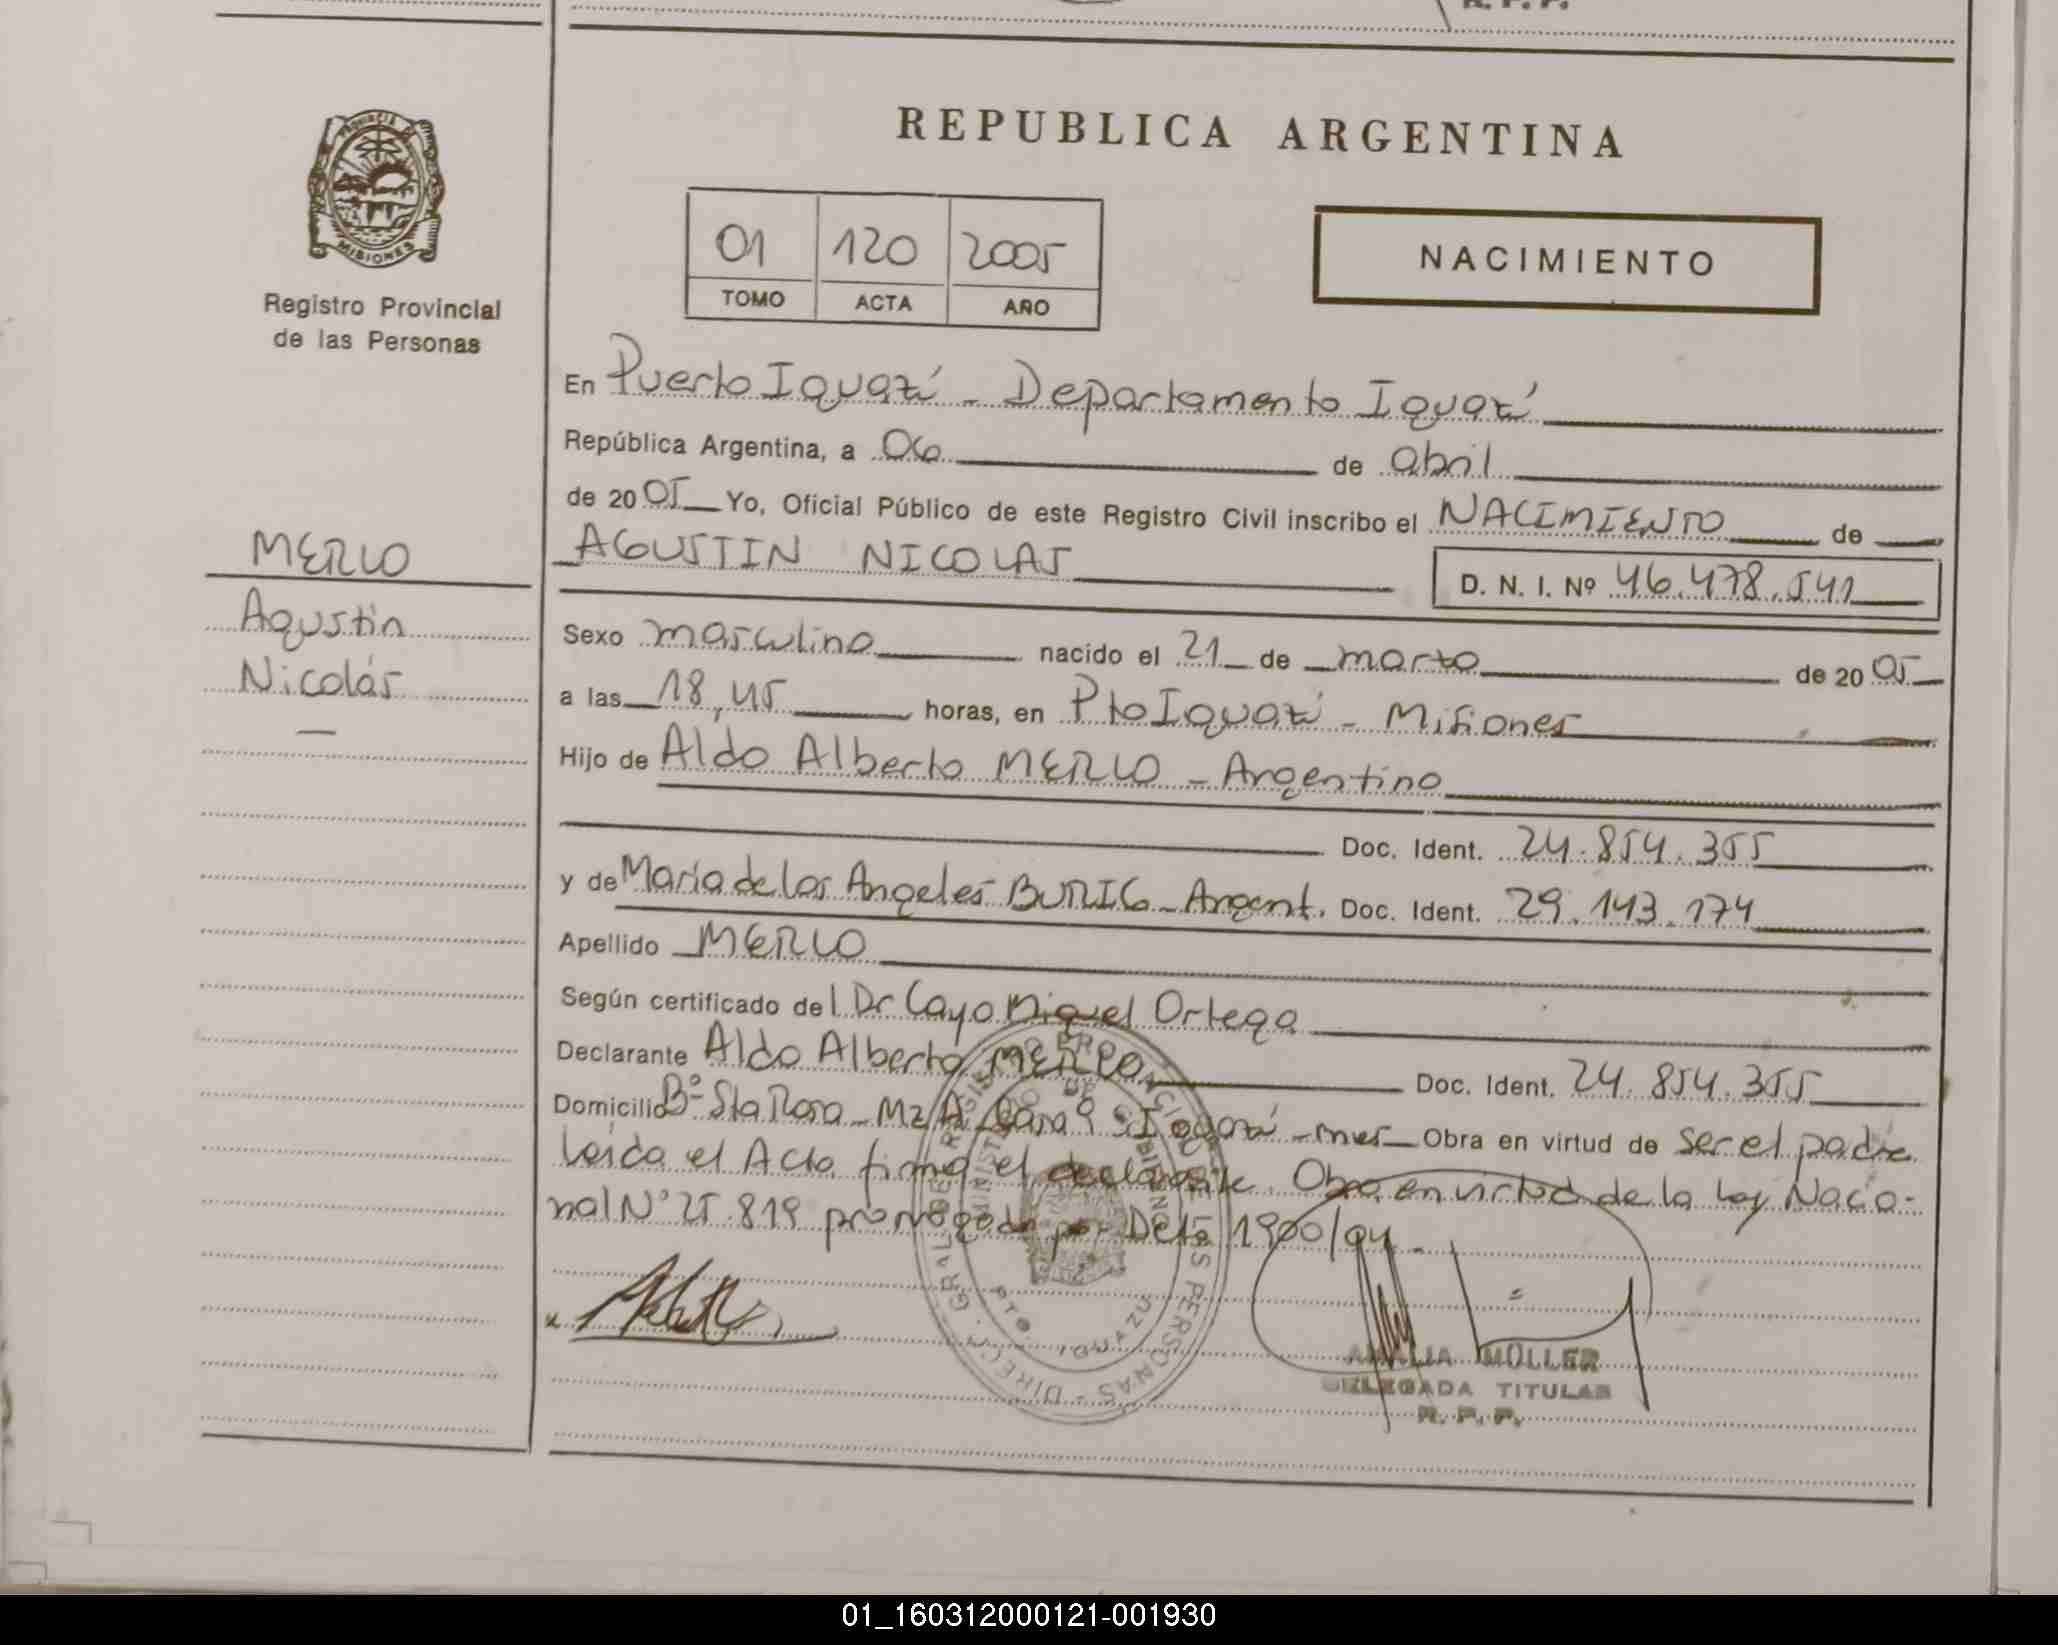 R. P. P.
PROVINCIA DE
MISIONES
Registro Provincial
de las Personas
MERLO
Agustín
Nicolás
—
REPUBLICA ARGENTINA
01 120 2005
TOMO ACTA AÑO
NACIMIENTO
En Puerto Iguazú - Departamento Iguazú
República Argentina, a 06 de abril
de 2005 Yo, Oficial Público de este Registro Civil inscribo el NACIMIENTO de
AGUSTIN NICOLAS
D. N. I. Nº 46.478.541
Sexo masculino nacido el 21 de marzo de 2005
a las 18,45 horas, en Pto Iguazú - Misiones
Hijo de Aldo Alberto MERLO - Argentino
Doc. Ident. 24.854.355
y de Maria de los Angeles BURIG - Argent. Doc. Ident. 29.143.174
Apellido MERLO
Según certificado del Dr Cayo Miguel Ortega
Declarante Aldo Alberto MERLO Doc. Ident. 24.854.355
Domicilio Bº Sta Rosa - Mz A Casa 9 Iguazú - Mnes Obra en virtud de ser el padre
Leída el Acta firma el declarante. Obra en virtud de la Ley Nacio-
nal Nº 25.819 prorrogada por Deto 1900/04 -
x
DIRECC. GRAL. DE REGISTRO PROVINCIAL DE LAS PERSONAS
MINISTERIO DE GOBIERNO
PTO. IGUAZU
AMALIA MULLER
DELEGADA TITULAR
R. P. P.
01_160312000121-001930